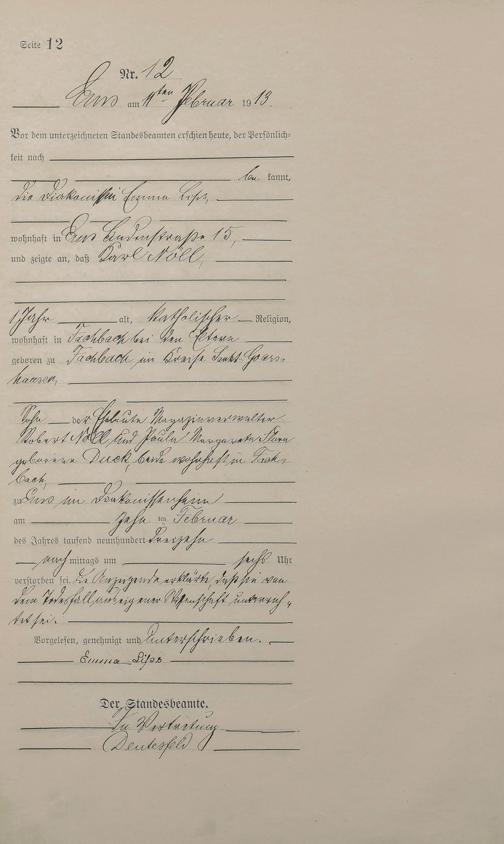 Seite 12
Nr. 12
Ems am 11ten Februar 1913.
Vor dem unterzeichneten Standesbeamten erschien heute, der Persönlich-
keit nach
be kannt,
die Diakonissin Emma
wohnhaft in Ems Lindenstraße 15,
und zeigte an, daß Karl Noll,
1 Jahr alt, katholischer Religion,
wohnhaft in Fachbach bei den Eltern
geboren zu Fachbach im Kreise Sankt Goars-
hausen,
Sohn der Eheleute Magazinverwalter
Robert Noll und Paula Margareta
geborene Duck, beide wohnhaft in Fach-
bach,
zu Ems im Diakonissenheim
am zehn ten Februar
des Jahres tausend neunhundert dreizehn
nach mittags um sechs Uhr
verstorben sei. Die Anzeigende erklärte, daß sie von
dem Todesfall aus eigener Wissenschaft unterrich-
tet sei.
Vorgelesen, genehmigt und unterschrieben.
Emma
Der Standesbeamte.
In Vertretung